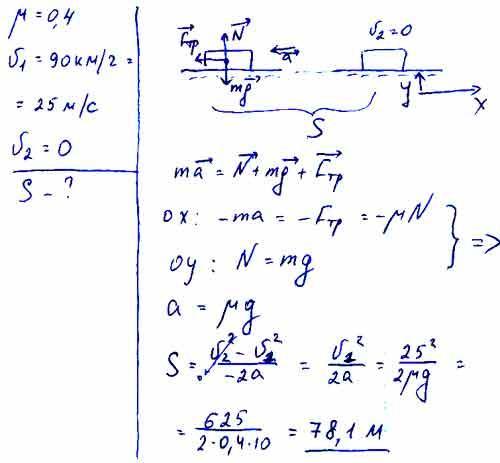 μ = 0,4
υ₁ = 90 км/г =
= 25 м/с
υ₂ = 0
S – ?
F⃗тр N⃗ a⃗ mg⃗
υ₂ = 0
S
y x
ma⃗ = N⃗ + mg⃗ + F⃗тр
ox: -ma = -Fтр = -μN
oy: N = mg
} =>
a = μg
S = (υ₂² - υ₁²)/(-2a) = υ₁²/2a = 25²/2μg =
= 625/(2·0,4·10) = 78,1 м